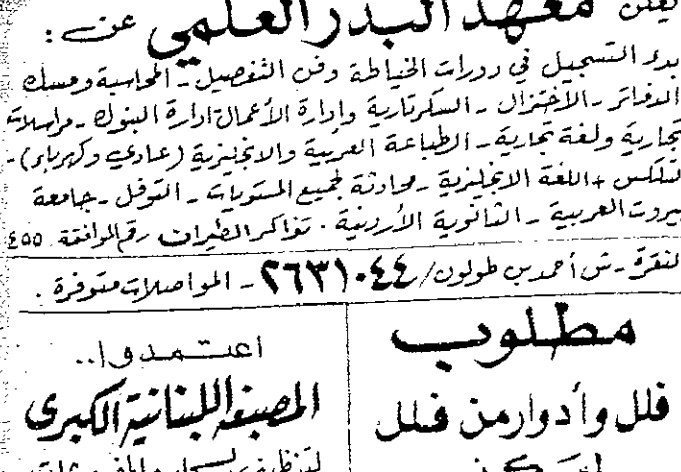 يعلن معهد البدر العلمي عن :
بدء التسجيل في دورات الخياطة وفن التفصيل - المحاسبة ومسك
الدفاتر - الاختزال - السكرتارية وإدارة الأعمال ادارة البنوك - مراسلات
تجارية ولغة تجارية - الطباعة العربية والانجليزية (عادي وكهرباء) -
تلكس + اللغة الانجليزية - محادثة لجميع المستويات - التوفل - جامعة
بيروت العربية - الثانوية الأردنية . تذاكر الطيران رقم الموافقة ٤٥٥
النقرة - ش أحمد بن طولون / ٢٦٣١٠٤٤ - المواصلات متوفرة .
مطلوب
فلل وأدوار من فلل
اعتمدوا..
المصبغة اللبنانية الكبرى